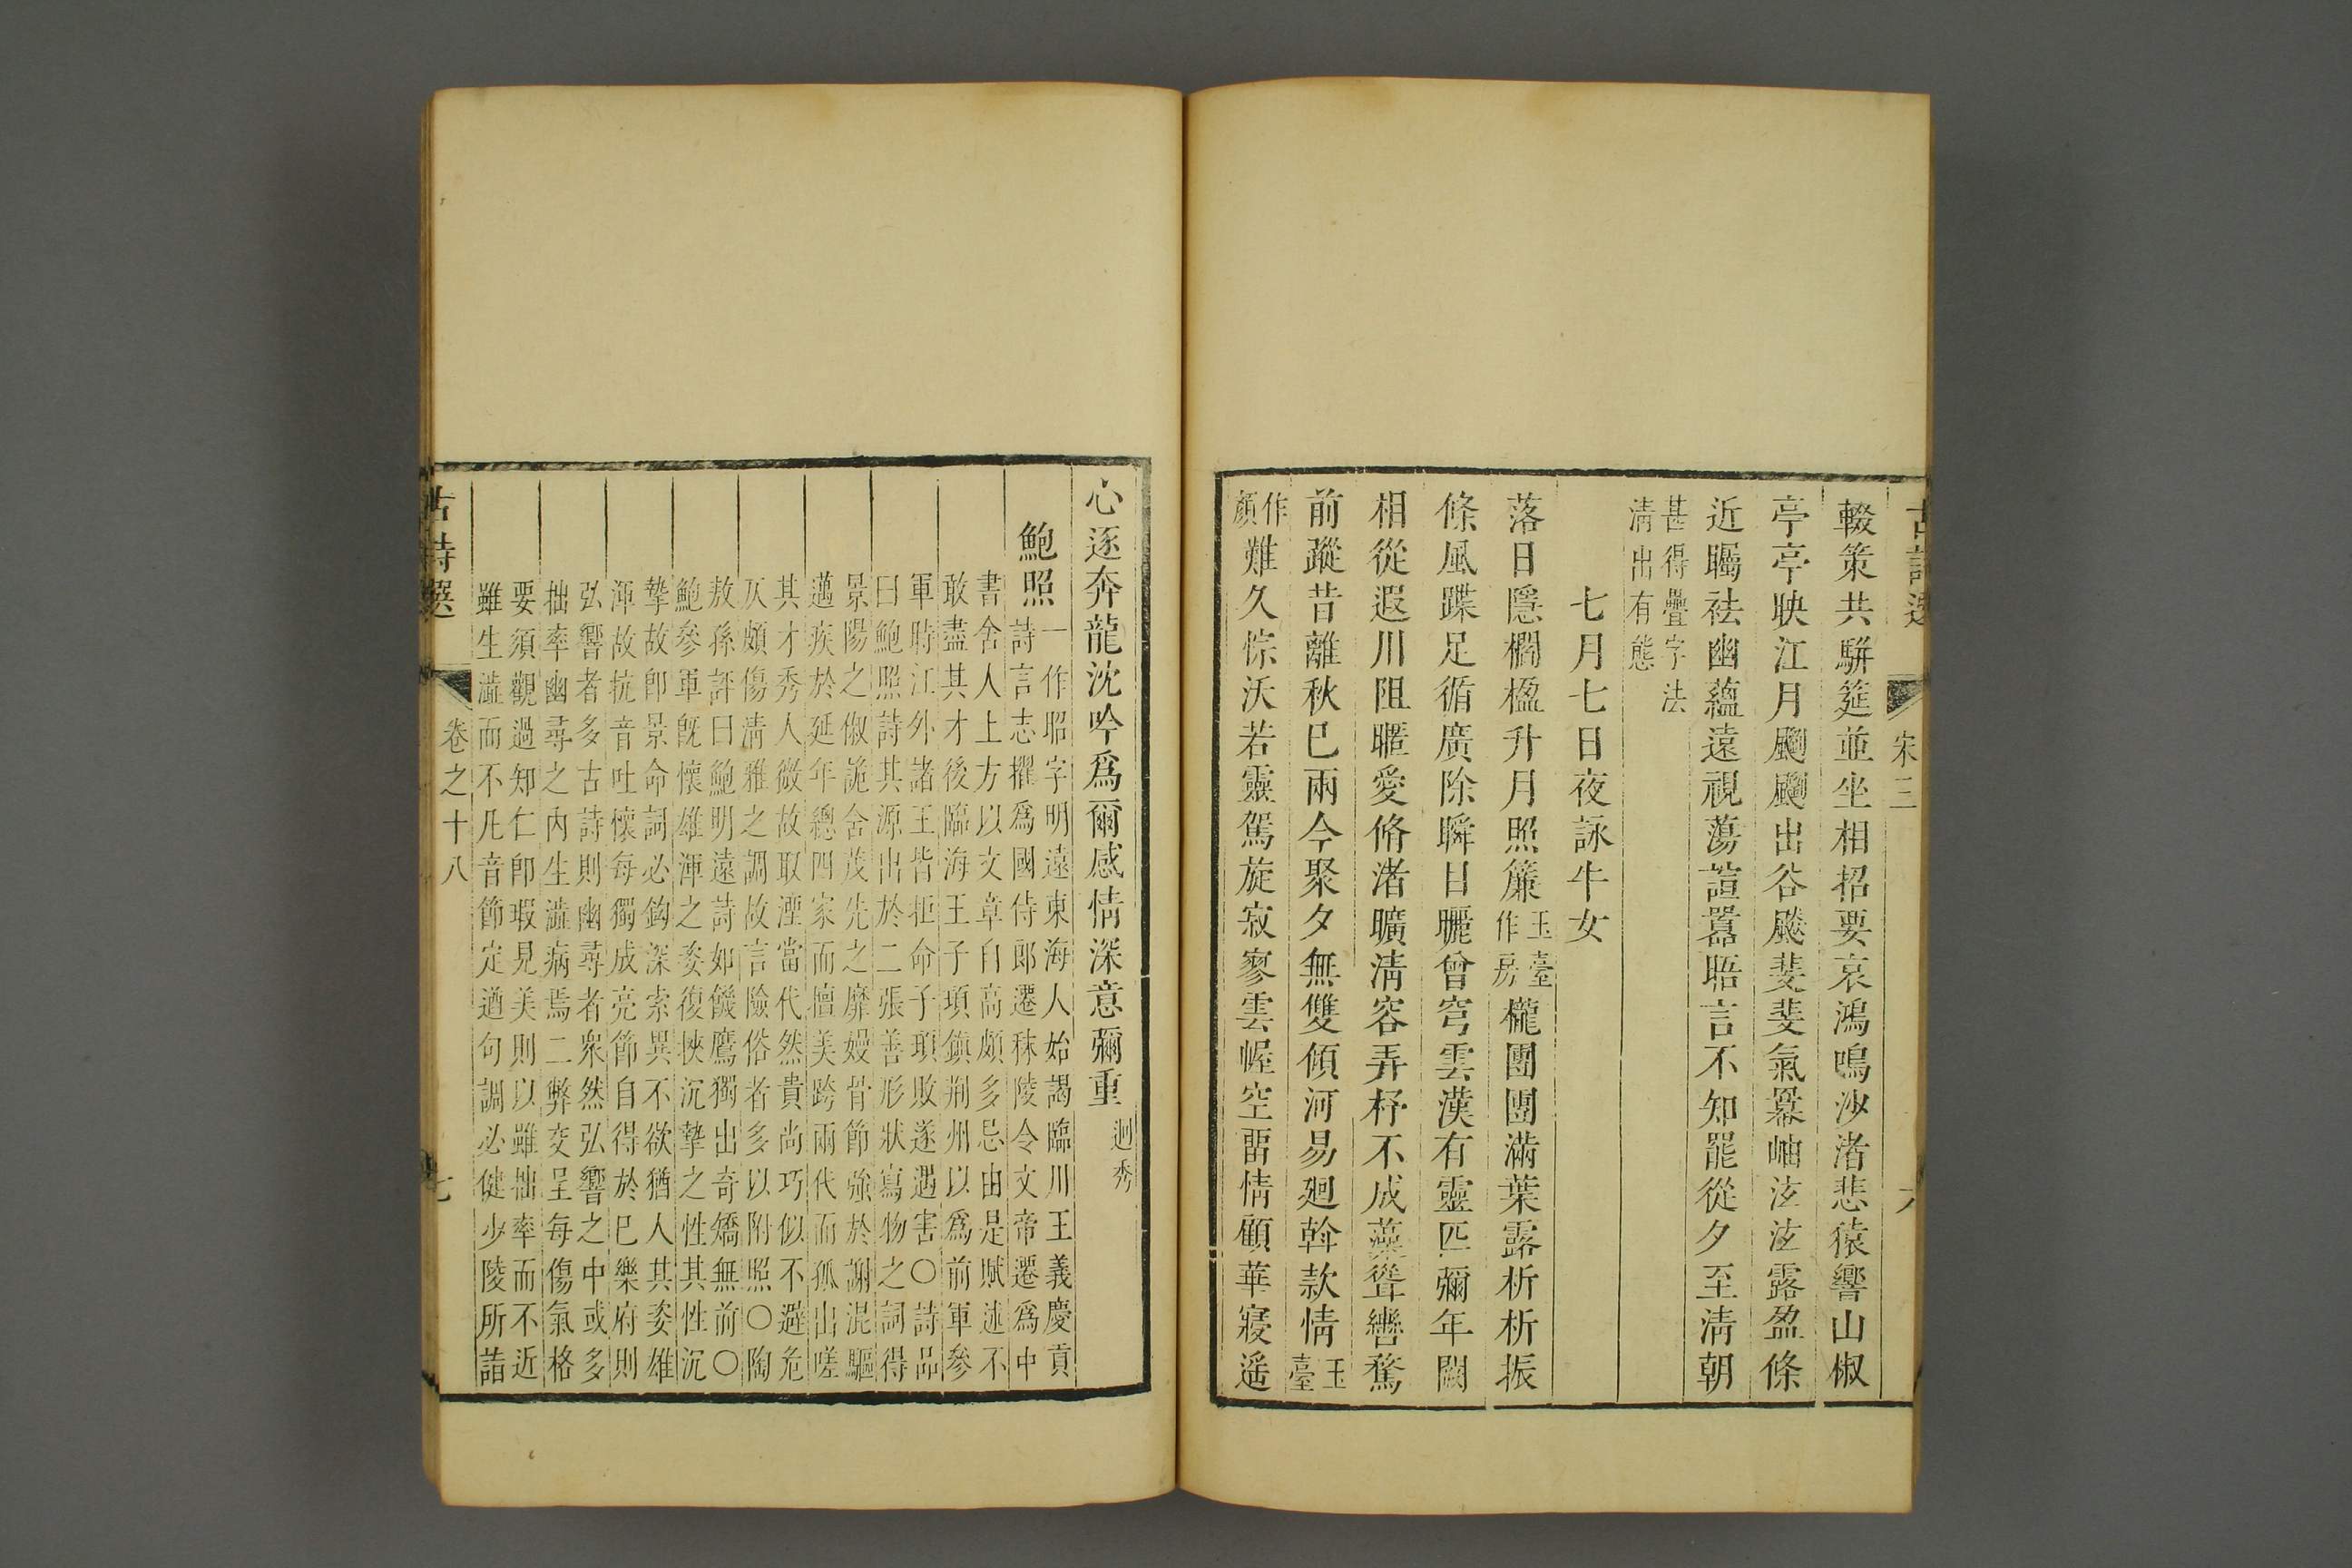 古詩選 宋三 六
輟策共駢筵並坐相招要哀鴻鳴沙渚悲猿響山椒
亭亭映江月飀飀出谷飈斐斐氣羃岫泫泫露盈條
近矚祛幽蘊遠視蕩諠囂晤言不知罷從夕至清朝
甚得疊字法
清出有態
七月七日夜詠牛女
落日隱櫩楹升月照簾玉臺作房櫳團團滿葉露析析振
條風蹀足循廣除瞬目矖曾穹雲漢有靈匹彌年闕
相從遐川阻暱愛脩渚曠清容弄杼不成藻聳轡騖
前蹤昔離秋巳兩今聚夕無雙傾河易廻斡款情玉臺
作顏難久悰沃若靈駕旋寂寥雲幄空畱情顧華寢遥
心逐奔龍沈吟爲爾感情深意彌重迥秀
鮑照
一作昭字明遠東海人始謁臨川王義慶貢
詩言志擢爲國侍郎遷秣陵令文帝遷爲中
書舍人上方以文章自高頗多忌由是賦述不
敢盡其才後臨海王子頊鎮荆州以爲前軍參
軍時江外諸王皆拒命子頊敗遂遇害○詩品
曰鮑照詩其源出於二張善形狀寫物之詞得
景陽之俶詭含茂先之靡嫚骨節強於謝混驅
邁疾於延年總四家而擅美跨兩代而孤出嗟
其才秀人微故取湮當代然貴尚巧似不避危
仄頗傷清雅之調故言險俗者多以附照○陶
敖孫評曰鮑明遠詩如饑鷹獨出奇矯無前○
鮑參軍旣懷雄渾之姿復挾沉摯之性其性沉
摯故卽景命詞必鈎深索異不欲猶人其姿雄
渾故抗音吐懷每獨成亮節自得於巳樂府則
弘響者多古詩則幽尋者衆然弘響之中或多
拙率幽尋之內生澁病焉二弊交呈每傷氣格
要須觀過知仁卽瑕見美則以雖拙率而不近
雖生澁而不凡音節定遒句調必健少陵所詣
古詩選 卷之十八 七